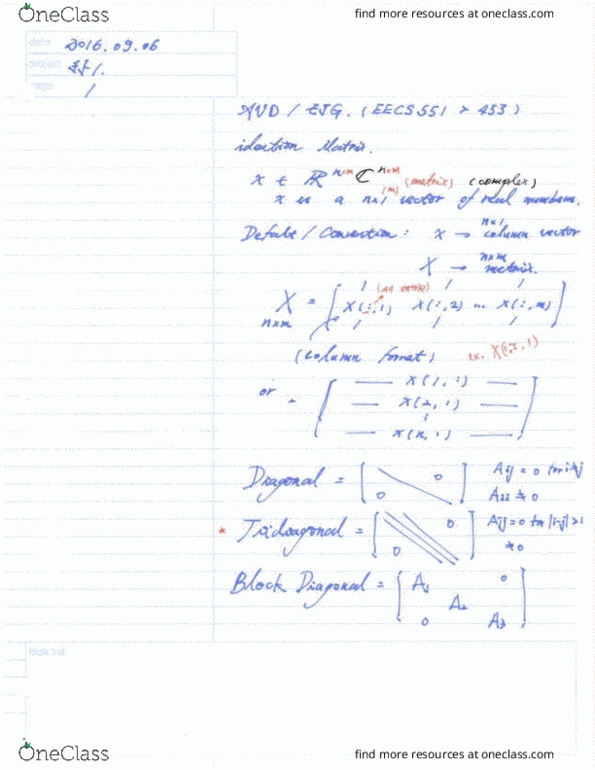 OneClass
find more resources at oneclass.com
date 2016.09.06
project #1.
page 1
/ EJG. (EECS 551 > 453)
Matrix.
x ∈ ℝ^n×m ℂ^n×m (matrix) (complex)
(m)
x is a n×1 vector of real numbers.
Default / Convention : x → n×1 column vector
X → n×m matrix.
(all entries)
X n×m = [ X(:,1) X(:,2) ... X(:,m) ]
(column format) ex. X(:,1)
or = [ — X(1,:) —
— X(2,:) —
⋮
— X(n,:) — ]
Diagonal = [ 0 0 ] Aij = 0 for i≠j
Aii ≠ 0
* Tridiagonal = [ 0 0 ] Aij = 0 for |i-j|>1
≠0
Block Diagonal = [ A1 0
A2
0 A3 ]
OneClass
find more resources at oneclass.com